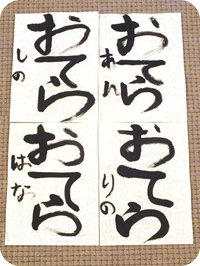 おてら
あん
おてら
しの
おてら
りの
おてら
はな